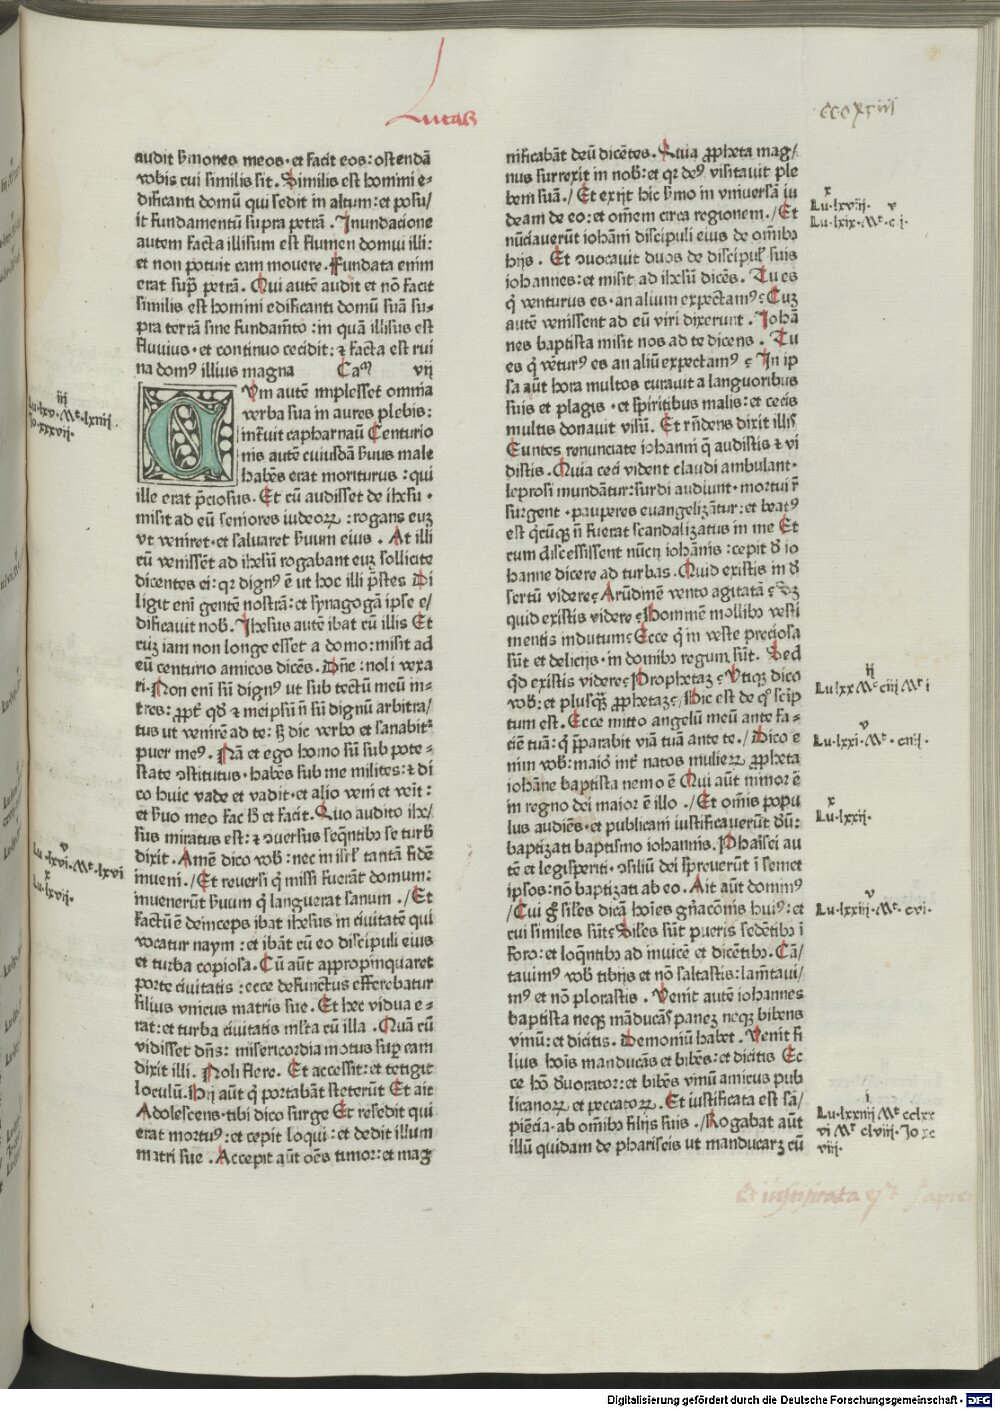 Lucas
ccoxxiiij
audit ẜmones meos·et facit eos: ostendā
vobis cui similis sit. Similis est homini e-
dificanti domū qui fedit in altum: et posu/
it fundamentū supra petrā. Inundacione
autem facta illisum est flumen domui illi:
et non potuit eam mouere. Fundata enim
erat sup̄ petrā. Qui autē audit et nō facit
similis est homini edificanti domū suā su-
pra terrā sine fundam̄to: in quā illisus est
fluuius·et continuo cecidit: ⁊ facta est rui
na domꝰ illius magna Caᵐ vij
Cum autē implesset omnia
verba sua in aures plebis:
intͬuit capharnaū Centurio
nis autē cuiusdā ẜuus male
habēs erat moriturus: qui
ille erat p̄ciosus. Et cū audisset de ihesu·
misit ad eū seniores iudeoꝝ: rogans euꝫ
vt veniret·et saluaret ẜuum eius. At illi
cū venissēt ad ihesū rogabant euꝫ sollicite
dicentes ei: qꝛ dignꝰ ē ut hoc illi p̄stes Di
ligit enī gentē nostrā: et synagogā ipse e/
dificauit nob̄. Ihesus autē ibat cū illis Et
cuꝫ iam non longe esset a domo: misit ad
eū centurio amicos dicēs. Dn̄e: noli vexa
ri. Non enī sū dignꝰ ut sub tectū meū in-
tres: ꝓpt̄ qd̄ ⁊ meipsū n̄ sū dignū arbitra/
tus ut venirē ad te: sꝫ dic verbo et sanabitͬ
puer meꝰ. Nā et ego homo sū sub pote-
state ↄstitutus·habēs sub me milites: ⁊ di
co huic vade et vadit·et alio veni et veit:
et ẜuo meo fac h̄ et facit. Quo audito ihe/
sus miratus est: ⁊ ↄuersus seq̄ntibꝫ se turb̄
dixit. Amē dico vob̄: nec in isrl̄ tantā fidē
inueni. / Et reuersi q̇ missi fuerāt domum:
inuenerūt ẜuum q̇ languerat sanum. / Et
factū ē deinceps ibat ihesus in ciuitatē qui
vocatur naym: et ibāt cū eo discipuli eius
et turba copiosa. Cū aūt appropinquaret
porte ciuitatis: ecce defunctus efferebatur
filius vnicus matris sue. Et hec vidua e-
rat: et turba ciuitatis ml̄ta cū illa. Quā cū
vidisset dn̄s: misericordia motus sup̄ eam
dixit illi. Noli flere. Et accessit: et tetigit
loculū. Hij aūt q̇ portabāt steterūt Et ait
Adolescens·tibi dico surge Et resedit qui
erat mortuꝰ: et cepit loqui: et dedit illum
matri sue. Accepit aūt oēs timor: et mag
nificabāt deū dicētes. Quia ꝓpheta mag/
nus surrexit in nob̄: et qꝛ deꝰ visitauit ple
bem suā. / Et exijt hic ẜmo in vniuersā iu
deam de eo: et om̄em circa regionem. / Et
nūciauerūt iohāni discipuli eius de om̄ibꝫ
hijs. Et ↄuocauit duos de discipul̄ suis
iohannes: et misit ad ihesū dicēs. Tu es
q̇ venturus es·an alium expectamꝰ? Cuꝫ
autē venissent ad eū viri dixerunt. Iohā
nes baptista misit nos ad te dicens. Tu
es q̇ vētur̄ꝰ es an aliū expectamꝰ? In ip
sa aūt hora multos curauit a languoribus
suis et plagis·et spiritibus malis: et cecis
multis donauit visū. Et rn̄dens dixit illis
Euntes renunciate iohanni q̄ audistis ⁊ vi
distis. Quia ceci vident claudi ambulant·
leprosi mundātur: surdi audiunt·mortui r̄
surgent·pauperes euangelizātur: et beatꝰ
est q̇cūqꝫ n̄ fuerat scandalizatus in me Et
cum discessissent nūcij iohānis: cepit d̄ io
hanne dicere ad turbas. Quid existis in d̄
sertū videre? Arūdinē vento agitatā? Sꝫ
quid existis videre? Hominē mollibꝫ vesti
mentis indutum? Ecce q̇ in veste preciosa
sūt et delicijs·in domibꝫ regum sūt. Sed
qd̄ existis videre? Prophetaꝫ? Vtiqꝫ dico
vob̄: et plusq̄ꝫ ꝓphetaꝫ? Hic est de qͦ scip̄
tum est. Ecce mitto angelū meū ante fa-
ciē tuā: q̇ p̄parabit viā tuā ante te. / Dico e
nim vob̄: maioͬ intͬ natos mulieꝝ ꝓpheta
iohāne baptista nemo ē Qui aūt minor ē
in regno dei maior ē illo. / Et om̄is popu
lus audiēs·et publicani iustificauerūt dm̄:
baptizati baptismo iohannis. Pharisei au
tē et legisperiti·ↄsiliū dei spreuerūt ī semet
ipsos: nō baptizati ab eo. Ait aūt dominꝰ
/ Cui g̊ siles dicā hoīes gn̄acōnis huiꝰ: et
cui similes sūt? Siles sūt pueris sedētibꝫ ī
foro: et loq̄ntibꝫ ad inuicē et dicētibꝫ. Cā/
tauimꝰ vob̄ tibijs et nō saltastis: lam̄taui/
mꝰ et nō plorastis. Venit autē iohannes
baptista neqꝫ māducās paneꝫ neqꝫ bibens
vinū: et dicitis. Demoniū habet. Venit fi
lius hoīs manducās et bibēs: et dicitis Ec
ce hō d̄uorator: et bibēs vinū amicus pub
licanoꝝ et peccatoꝝ. Et iustificata est sā/
piēcia·ab om̄ibꝫ filijs suis. / Rogabat aūt
illū quidam de phariseis ut manducarꝫ cū
iij
Lu·lxv·Mᵗ·lxiiij.
Jo·xxxvij.
v
Lu·lxvi·Mᵗ·lxvi
x
Lu·lxvij.
x
Lu·lxviij. v
Lu·lxix·Mᵗ·cj.
ij
Lu·lxx Mᵗ ciij Mͬ i
v
Lu·lxxi·Mᵗ·ciij.
x
Lu·lxxij.
v
Lu·lxxiij·Mᵗ·cvi.
i
Lu·lxxiiij Mᵗ cclxx
vi Mͬ clviij. Jo xc
viij.
Et iustificata est sapien
Digitalisierung gefördert durch die Deutsche Forschungsgemeinschaft - DFG